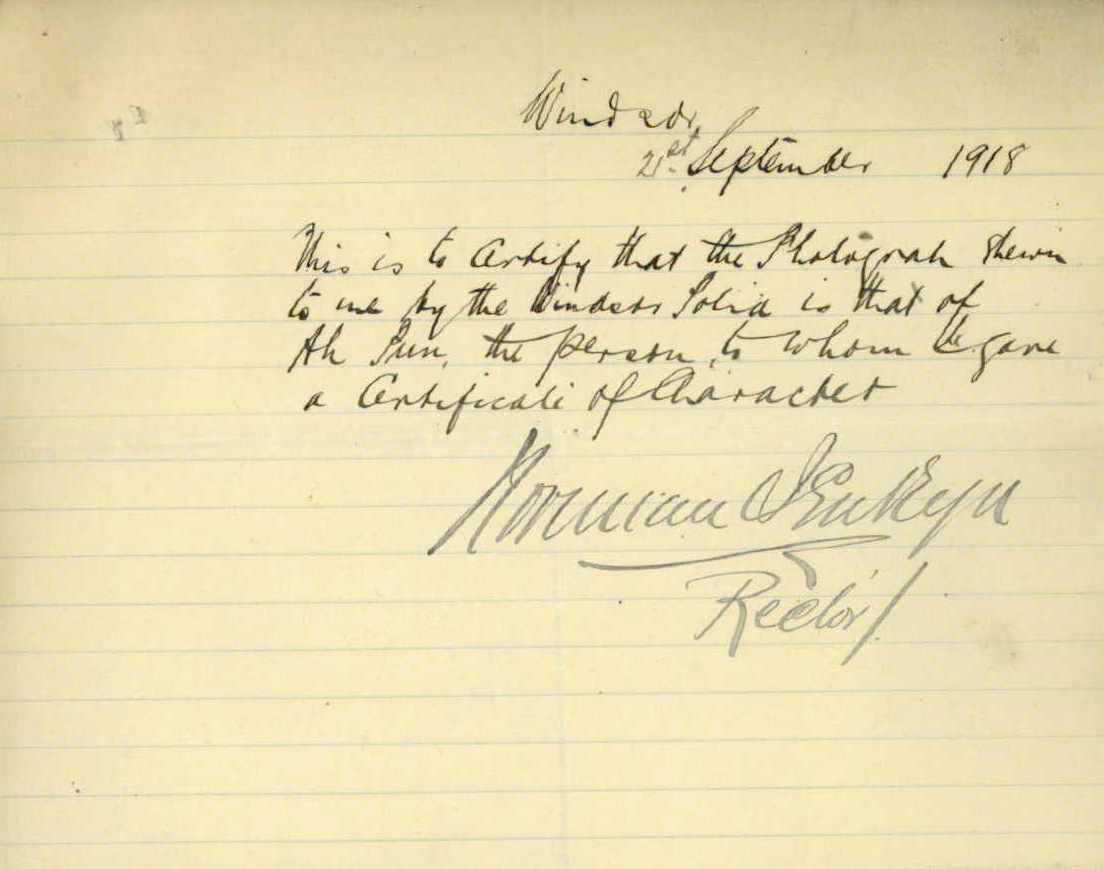 Windsor,
21st September 1918
This is to Certify that the Photograh shewn
to me by the Windsor Police is that of
Ah Pun, the person, to whom he gave
a Certificate of Character
Norman Jenkyn
Rector